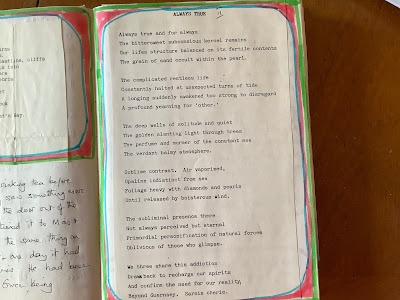 ALWAYS TRUE
Always true and for always
The bittersweet subconscious kernel remains
Our lifes structure balanced on its fertile contents
The grain of sand occult within the pearl.
The complicated restless life
Constantly halted at unexpected turns of tide
A longing suddenly awakened too strong to disregard
A profound yearning for 'other.'
The deep wells of solitude and quiet
The golden slanting light through trees
The perfume and murmer of the constant sea
The verdant balmy atmosphere.
Sublime contrast. Air vaporised,
Opaline indistinct from sea
Foliage heavy with diamonds and pearls
Until released by boisterous wind.
The subliminal presence there
Not always perceived but eternal
Primordial personification of natural forces
Oblivious of those who glimpse.
We three share this addiction
Drawn back to recharge our spirits
And confirm the need for our reality
Beyond Guernsey. Sarnia cherie.
cliffs
making tea before
saw something move
the door out of the
the same thing on
one day it had
He had been
Given being